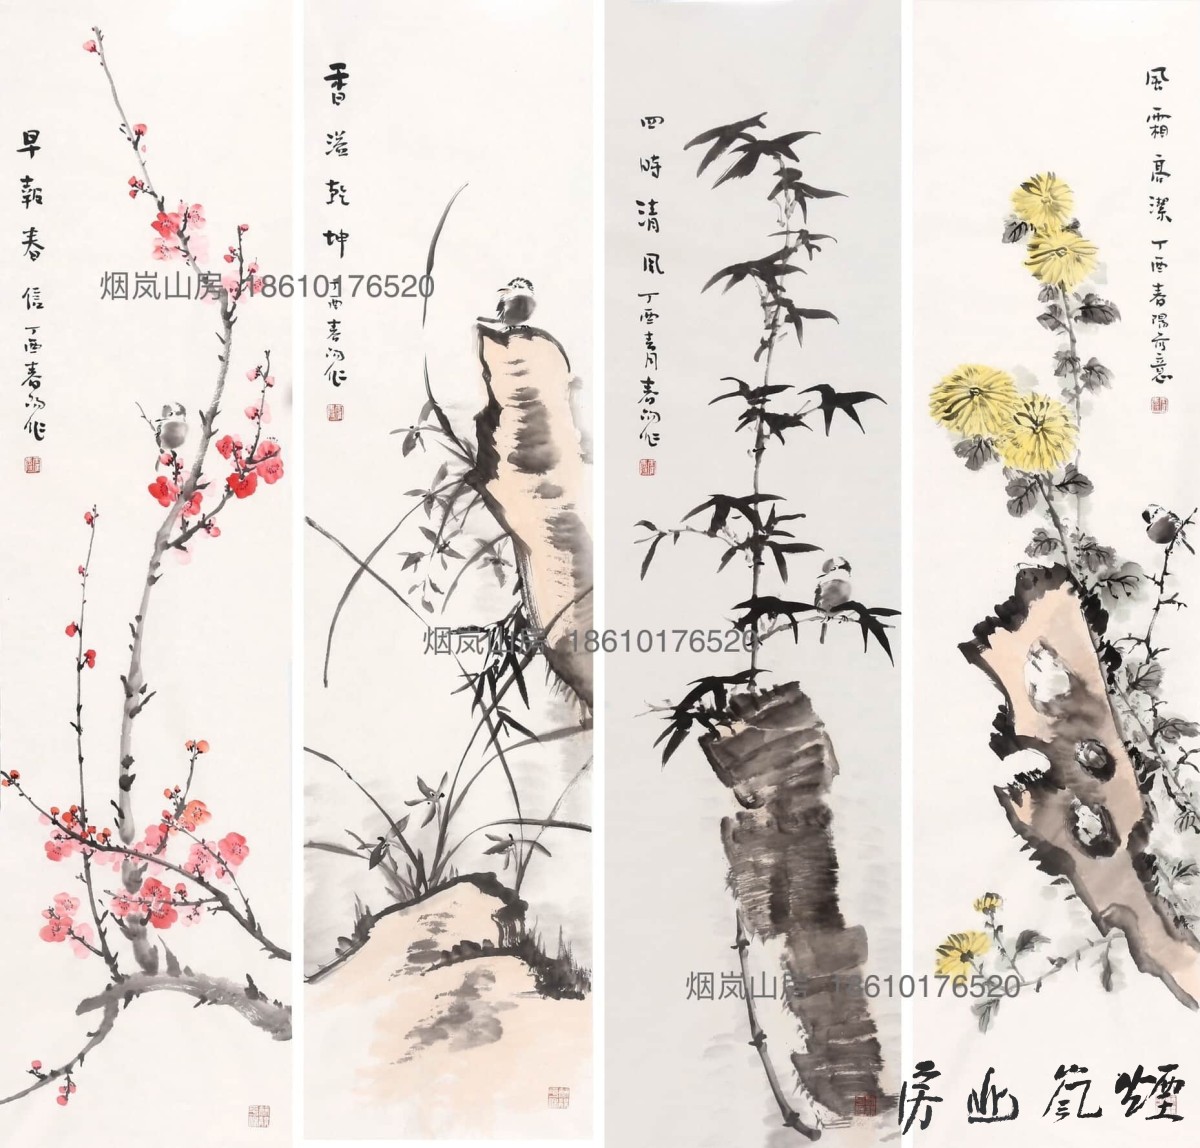 早報春信 丁酉春陽作
香溢乾坤 丁酉春陽作
四時清風 丁酉青月春陽作
風霜高潔 丁酉春陽寫意
烟岚山房 18610176520
烟岚山房 18610176520
烟岚山房 18610176520
房山嵐煙